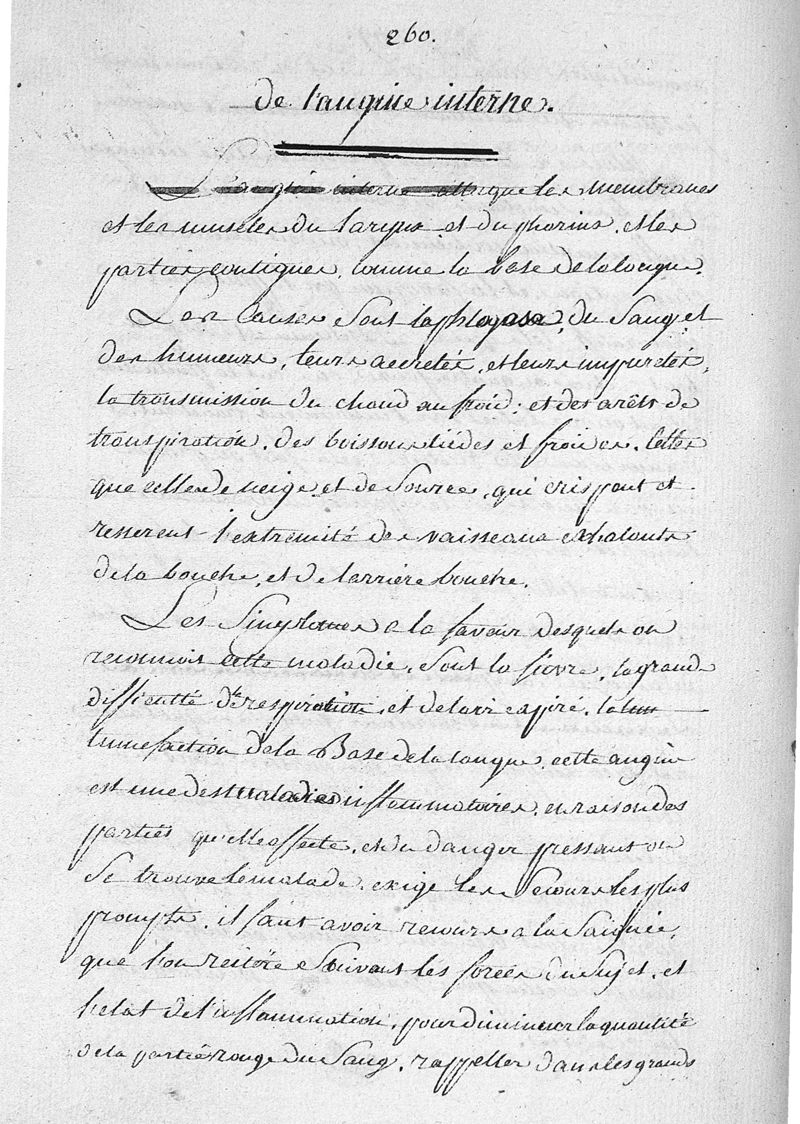 260.
de l'angine interne.
L'angine interne attaque les membranes
et les muscles du larynx et du pharinx, et les
parties contigues, comme la base de la langue.
Les causes sont la phlogose, du sang et
des humeurs, leurs acretés, et leurs impuretés,
la transmission du chaud au froid; et des arêts de
transpiration, des boissons tiédes et froides, telles
que celles de neige, et de source, qui crispent et
resserent l'extremité des vaisseaux exhalants
de la bouche, et de larriere bouche.
Les Simptomes a la faveur desquels on
reconnoit cette maladie, sont la fievre, la grande
difficulté de respiration, et de l'air expiré, la
tumefaction de la Base de la langue, cette angine
est une des maladies inflammatoires, en raison des
parties qu'elle affecte, et du danger pressant ou
se trouve le malade, exige les secours les plus
prompts, il faut avoir recours a la Saignée,
que l'on reitére Suivant les forces du Sujet, et
l'etat de l'inflammation, pour diminuer la quantité
de la partie rouge du Sang, rappeller dans les grands